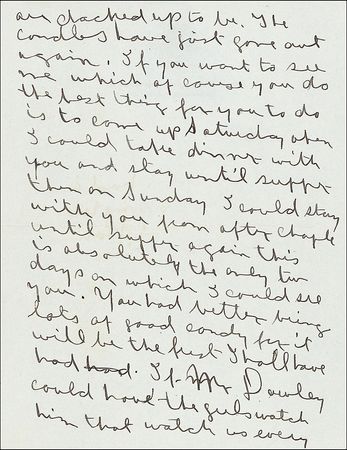 are clacked up to be. The
candles have just gone out
again. If you want to see
me which of course you do
the best thing for you to do
is to come up Saturday when
I could take dinner with
you and stay until supper
then on Sunday I could stay
with you from after chaple
until supper again this
is absolutely the only two
days on which I could see
you. You had better bring
lots of good candy for it
will be the first I shall have
had had. If Mr Dowley
could have the girls watch
him that watch us every